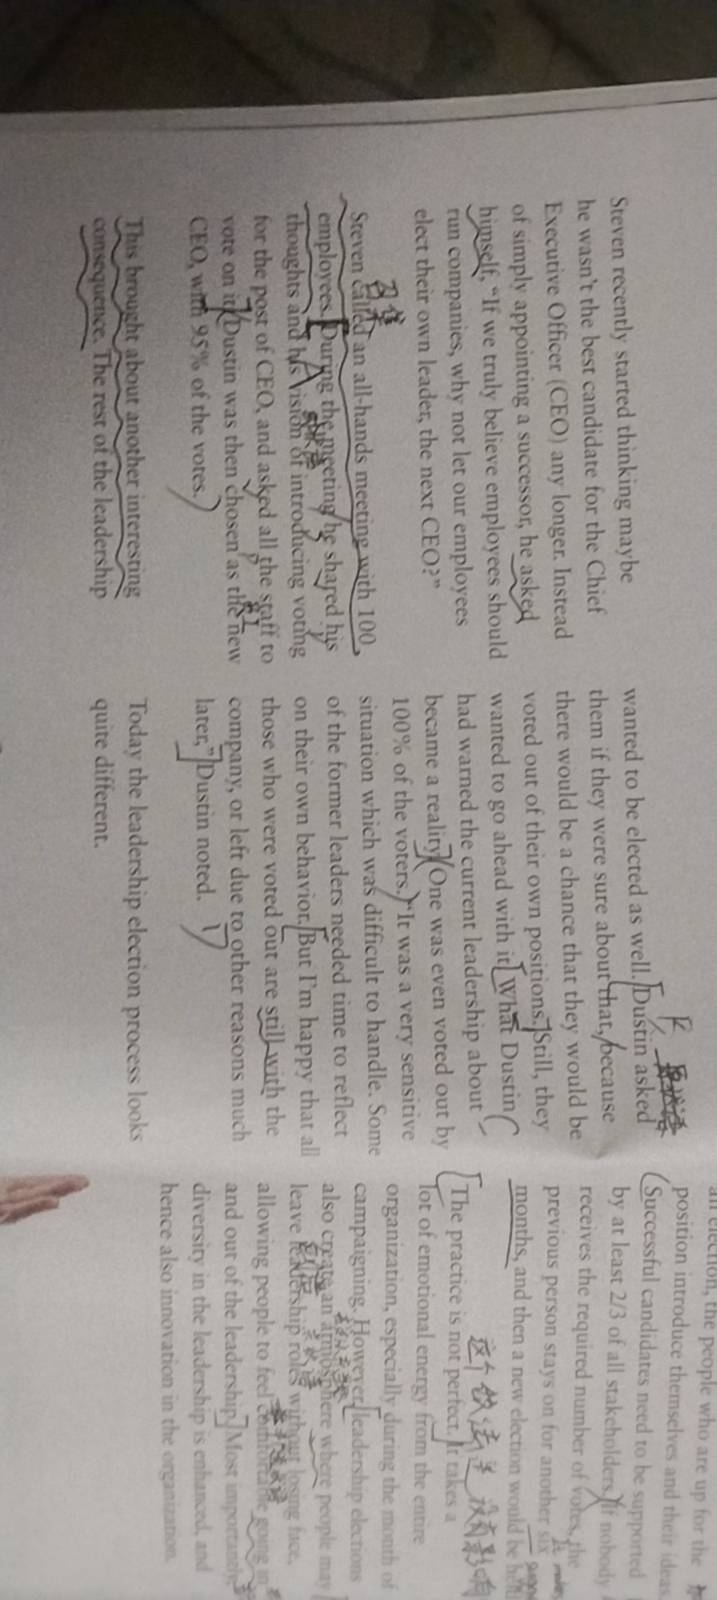 Steven recently started thinking maybe
he wasn't the best candidate for the Chief
Executive Officer (CEO) any longer. Instead
of simply appointing a successor, he asked
himself, "If we truly believe employees should
run companies, why not let our employees
elect their own leader, the next CEO?"
Steven called an all-hands meeting with 100
employees. During the meeting he shared his
thoughts and his vision of introducing voting
for the post of CEO, and asked all the staff to
vote on it. Dustin was then chosen as the new
CEO, with 95% of the votes.
This brought about another interesting
consequence. The rest of the leadership
wanted to be elected as well. Dustin asked
them if they were sure about that, because
there would be a chance that they would be
voted out of their own positions. Still, they
wanted to go ahead with it. What Dustin
had warned the current leadership about
became a reality. One was even voted out by
100% of the voters. "It was a very sensitive
situation which was difficult to handle. Some
of the former leaders needed time to reflect
on their own behavior. But I'm happy that all
those who were voted out are still with the
company, or left due to other reasons much
later," Dustin noted.
Today the leadership election process looks
quite different.
an election, the people who are up for the
position introduce themselves and their ideas.
Successful candidates need to be supported
by at least 2/3 of all stakeholders. If nobody
receives the required number of votes, the
previous person stays on for another six
months, and then a new election would be held
这个做法 没有影响
The practice is not perfect. It takes a
lot of emotional energy from the entire
organization, especially during the month of
campaigning. However, leadership elections
also create an atmosphere where people may
leave leadership roles without losing face,
allowing people to feel comfortable going in
and out of the leadership. Most importantly,
diversity in the leadership is enhanced, and
hence also innovation in the organization.